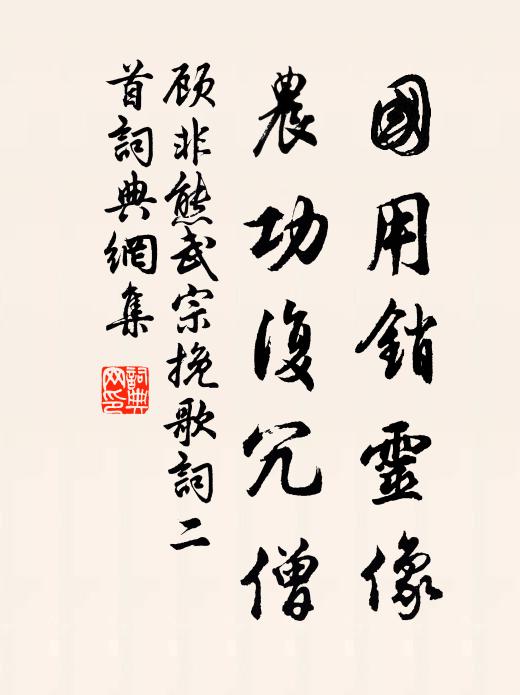 國用銷靈像
農功復冗僧
顾非熊武宗挽歌詞二
首詞典網集
詞典网印